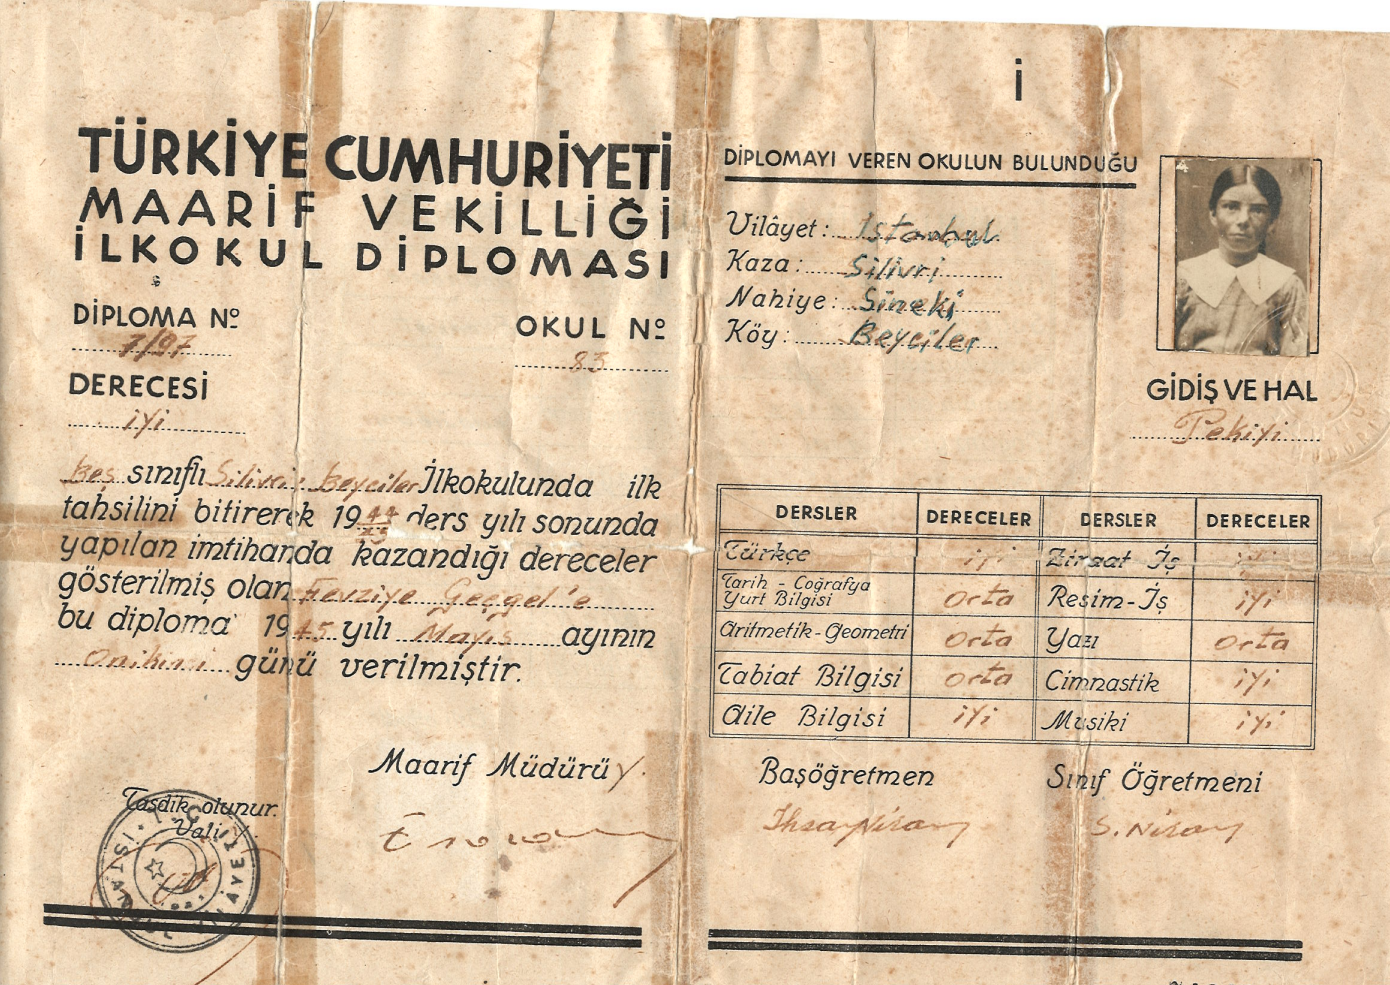 TÜRKİYE CUMHURİYETİ
MAARİF VEKİLLİĞİ
İLKOKUL DİPLOMASI
DİPLOMA Nº
7/97
OKUL Nº
83
DERECESİ
iyi
Beş sınıflı Silivri Beyciler İlkokulunda ilk
tahsilini bitirerek 1944/45 ders yılı sonunda
yapılan imtihanda kazandığı dereceler
gösterilmiş olan Fevziye Geçgel'e
bu diploma 1945 yılı Mayıs ayının
Onikinci günü verilmiştir.
Maarif Müdürü
Tasdik olunur.
Vali
İ
DİPLOMAYI VEREN OKULUN BULUNDUĞU
Vilâyet: İstanbul
Kaza: Silivri
Nahiye: Sineki
Köy: Beyciler
GİDİŞ VE HAL
Pekiyi
DERSLER DERECELER DERSLER DERECELER
Türkçe iyi Ziraat İş iyi
Tarih - Coğrafya
Yurt Bilgisi orta Resim-İş iyi
Aritmetik-Geometri orta Yazı orta
Tabiat Bilgisi orta Cimnastik iyi
Aile Bilgisi iyi Musiki iyi
Başöğretmen Sınıf Öğretmeni
İhsan Nisan S. Nisan